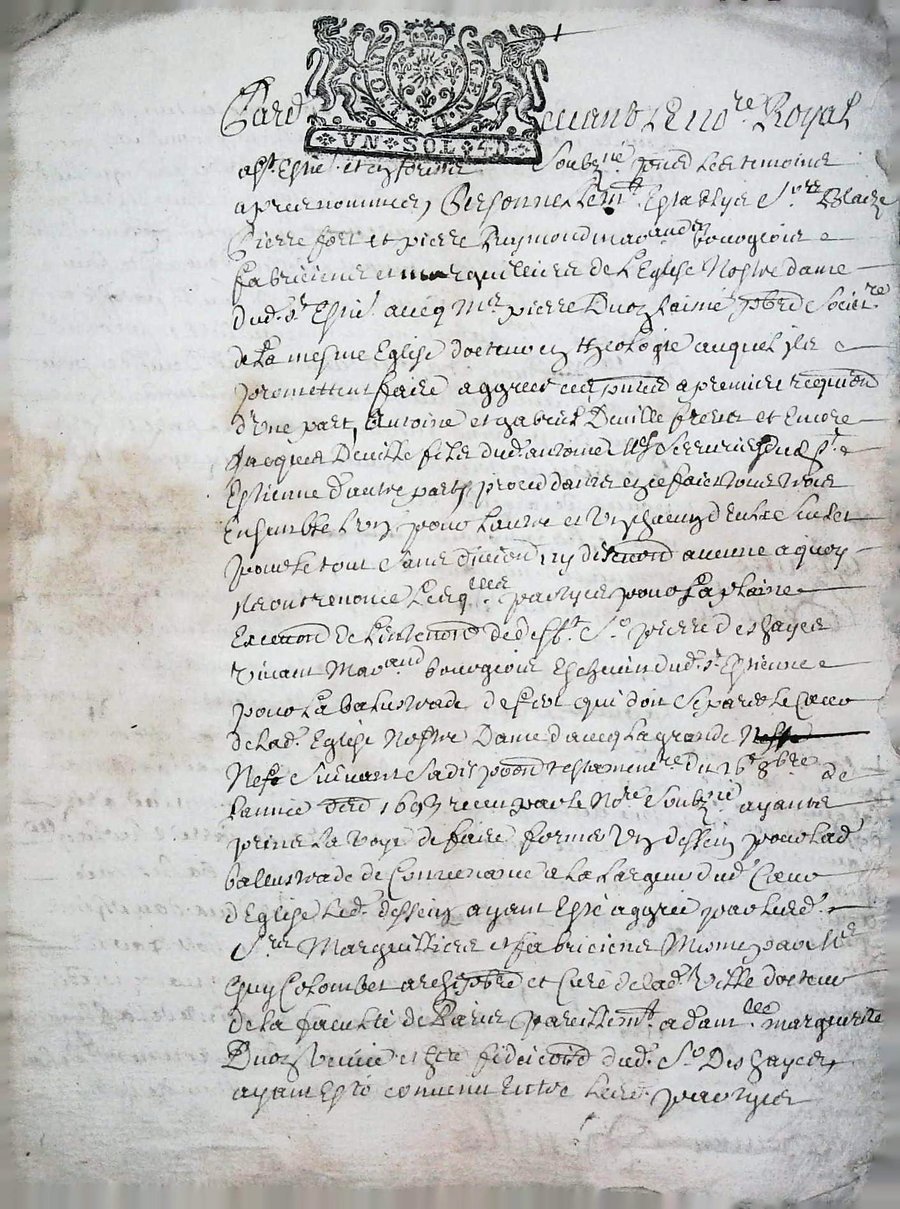 GEN.D.
VN · SOL · 4D
Pard evant le nore Royal
a St Estne et en forme Soubzné pnts les temoins
apres nommes, Personnellemt Establys Srs Blaize
Pierre fort et pierre Reymond marands bourgeois
fabriciens et marguilliers de l'Eglise Nostre dame
dud. St Estne avecq Mre pierre Duon laisné pbre Societre
de la mesme Eglise docteur en theologie auquel ils
promettent faire aggreer ces pntes a premiere requion
d'une part, Antoine et gabriel Deville freres et Encore
Jacques Deville fils dud. antoine Mes Serruriers dud St
Estienne d'autre part, procedants en ce fait tous trois
Ensemble l'un pour lautre et Un chacun d'entre eux Seul et
pour le tout sans division ny discuon aucune a quoy
ils ont renoncé Lesqlles partyes pour La plaine
Execuon de l'intenon de defft Sr pierre deshayes
vivant Marand bourgeois Eschevin dud. St Estienne
pour La balustrade de fert qui doit separer Le Coeur
de lad. Eglise Nostre Dame d'avecq La grande
Nefe Suivant Sa dispoon testamentre du 16 8bre de
l'année der 1693 receu par le Nore Soubzné ayants
prins La voye de faire former Un dessein pour lad
ballustrade de Convenance a La Largeur dud. Coeur
d'Eglise Led. dessein ayant Esté aggreé par lesd.
Srs Marguilliers et fabriciens Mesme par Mre
Guy Colombet archipbre et Curé de lad. Ville docteur
de la faculté de Paris pareillemt a damlle marguerite
Duon veuve et here fideicore dud. Sr Deshayes,
ayant Esté convenu Entre Lesd. partyes